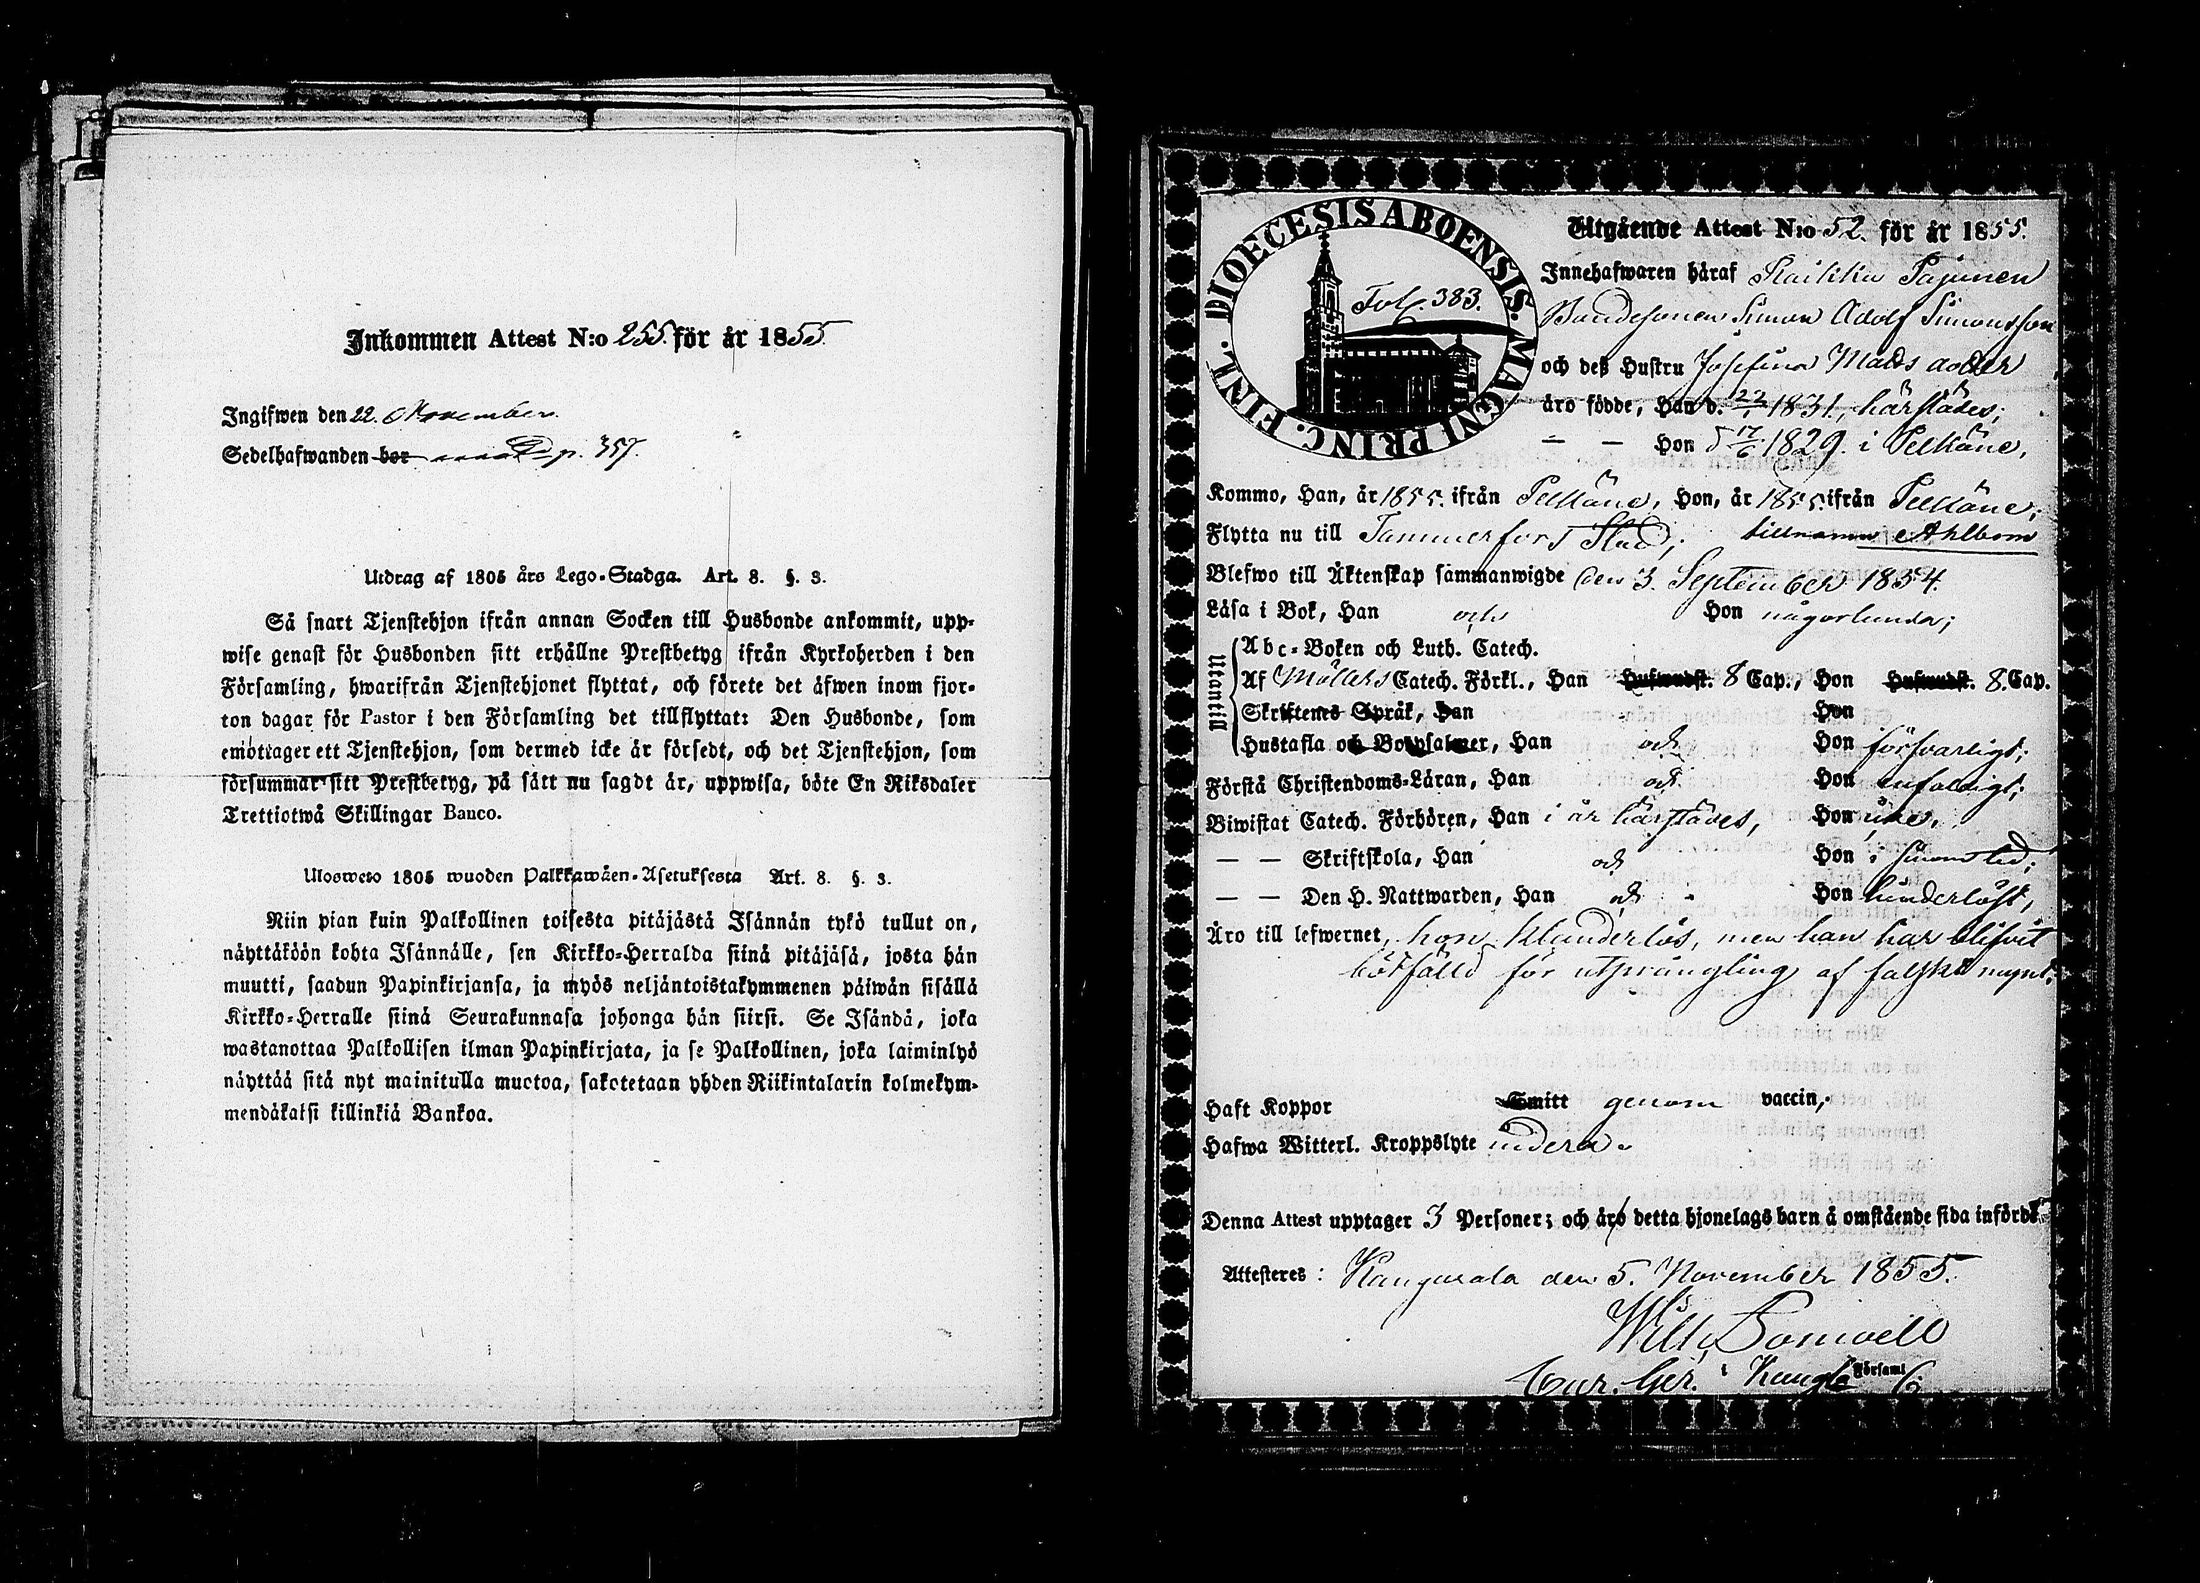 Inkommen Attest N:o 255. för år 1855.
Ingifwen den 22. November.
Sedelhafwanden bor p. 357.
Utdrag af 1805 års Lego-Stadga. Art. 8. §. 3.
Så snart Tjenstehjon ifrån annan Socken till Husbonde ankommit, upp-
wise genast för Husbonden sitt erhållne Prestbetyg ifrån Kyrkoherden i den
Församling, hwarifrån Tjenstehjonet flyttat, och förete det äfwen inom fjor-
ton dagar för Pastor i den Församling det tillflyttat: Den Husbonde, som
emottager ett Tjenstehjon, som dermed icke är försedt, och det Tjenstehjon, som
försummar sitt Prestbetyg, på sätt nu sagdt är, uppwisa, böte En Riksdaler
Trettiotwå Skillingar Banco.
Ulosweto 1805 wuoden Palkkawäen-Asetuksesta Art. 8. §. 3.
Niin pian kuin Palkollinen toisesta pitäjästä Isännän tykö tullut on,
näyttäköön kohta Isännälle, sen Kirkko-Herralda siinä pitäjäsä, josta hän
muutti, saadun Papinkirjansa, ja myös neljäntoistakymmenen päiwän sisällä
Kirkko-Herralle siinä Seurakunnasa johonga hän siirsi. Se Isändä, joka
wastanottaa Palkollisen ilman Papinkirjata, ja se Palkollinen, joka laiminlyö
näyttää sitä nyt mainitulla muotoa, sakotetaan yhden Riikintalarin kolmekym-
mendäkaksi killinkiä Bankoa.
DIOECESIS ABOENSIS. MAGNI PRINC. FINL.
Fol. 383.
Utgående Attest N:o 52. för år 1855.
Innehafwaren häraf Raikku Pajunen
Bondesonen Simon Adolf Simonsson
och deß Hustru Josefina Mats doter
äro födde, Han d. 22/1 1831, härstädes;
— — Hon d 17/6 1829. i Pelkäne,
Kommo, Han, år 1855. ifrån Pelkäne, Hon, år 1855. ifrån Pelkäne;
Flytta nu till Tammerfors Stad; tillnamn Ahlbom
Blefwo till Äktenskap sammanwigde den 3. September 1854.
Läsa i Bok, Han och Hon någorlunda;
Utantill
Abc-Boken och Luth. Catech.
Af Möllers Catech. Förkl., Han Hufwudst. 8 Cap., Hon Hufwudst. 8. Cap.
Skriftenes Språk, Han Hon
Hustafla och Botpsalmer, Han och Hon försvarligt;
Förstå Christendoms-Läran, Han och Hon enfaldigt;
Biwistat Catech. Förhören, Han i år härstädes, Hon
— — Skriftskola, Han och Hon i sinom tid;
— — Den H. Nattwarden, Han och Hon hinderlöst,
Äro till lefwernet, hon klanderlös, men han har blifvit
bötfälld för utprångling af falskt mynt.
Haft Koppor Smitt genom vaccin,
Hafwa Witterl. Kroppslyte
Denna Attest upptager 3 Personer; och äro detta hjonelags barn å omstående sida införde
Attesteres: Kangasala den 5. November 1855.
Wilh.
i Församl